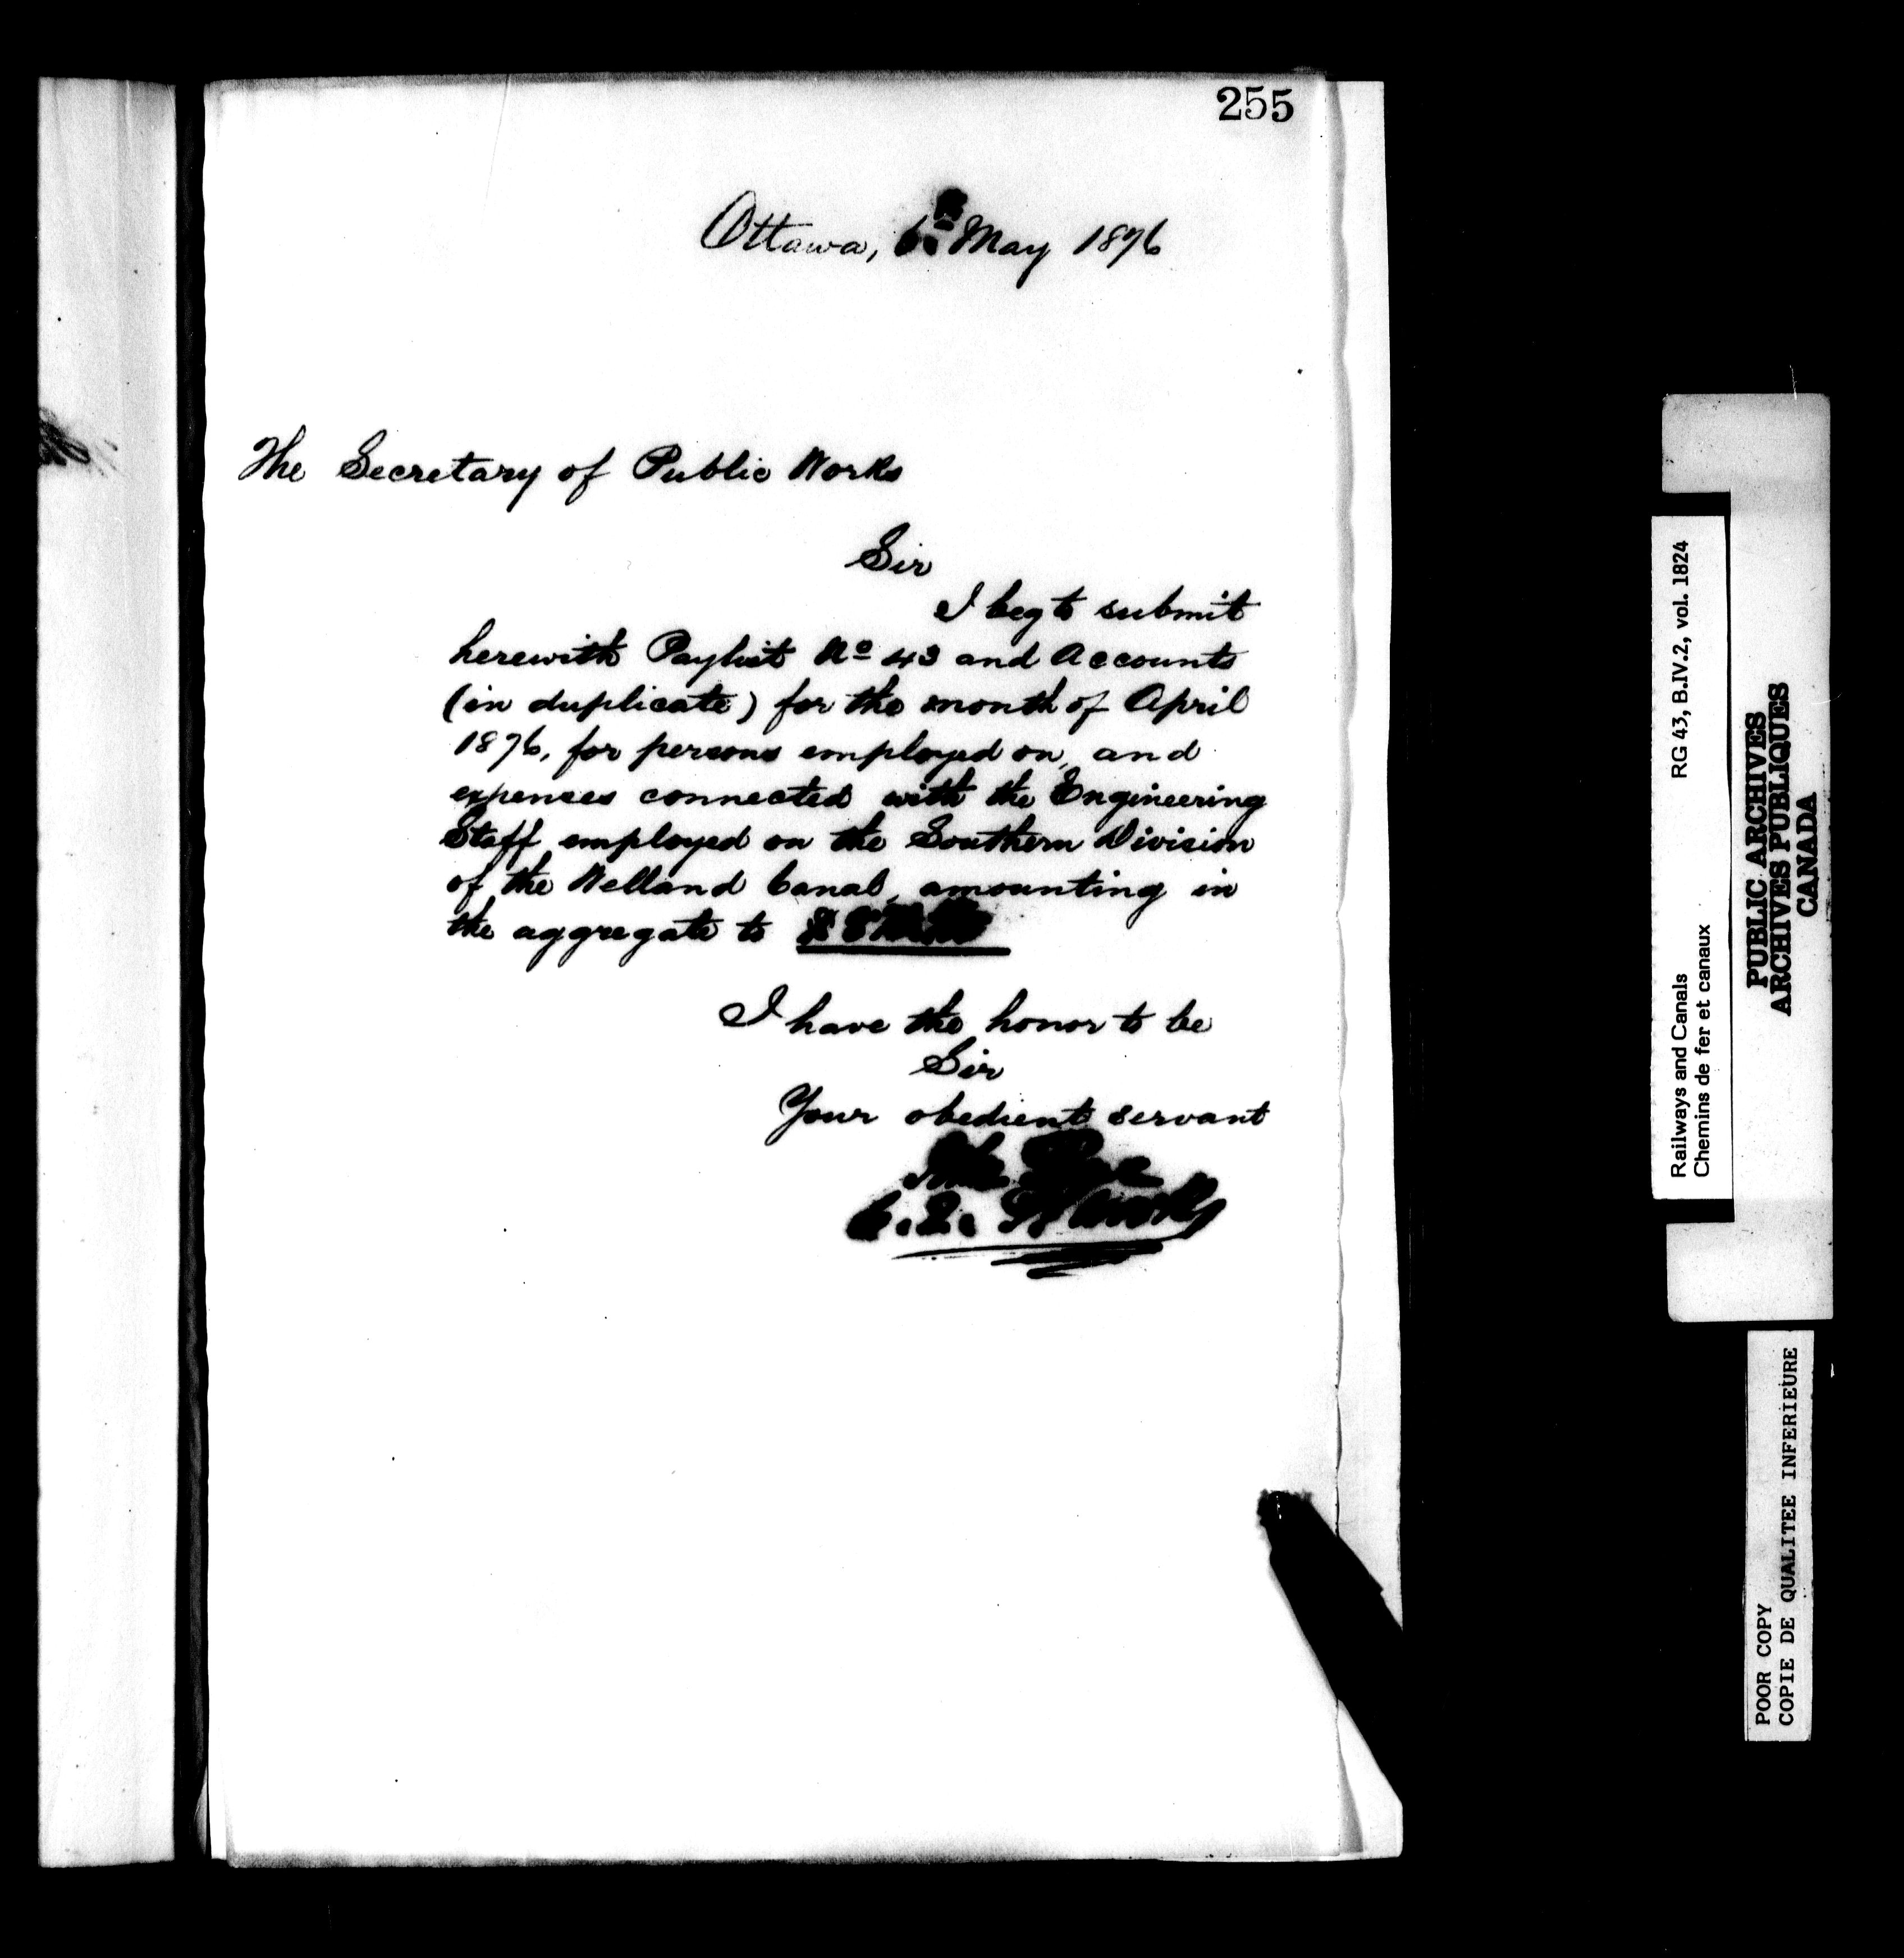 255
Ottawa, 6th May 1876
The Secretary of Public Works
Sir
I beg to submit
herewith Paylist No 43 and Accounts
(in duplicate) for the month of April
1876, for persons employed on, and
expenses connected with the Engineering
Staff employed on the Southern Division
of the Welland Canal, amounting in
the aggregate to
I have the honor to be
Sir
Your obedient servant
Railways and Canals RG 43, B.IV.2, vol. 1824
Chemins de fer et canaux
PUBLIC ARCHIVES
ARCHIVES PUBLIQUES
CANADA
POOR COPY
COPIE DE QUALITEE INFERIEURE